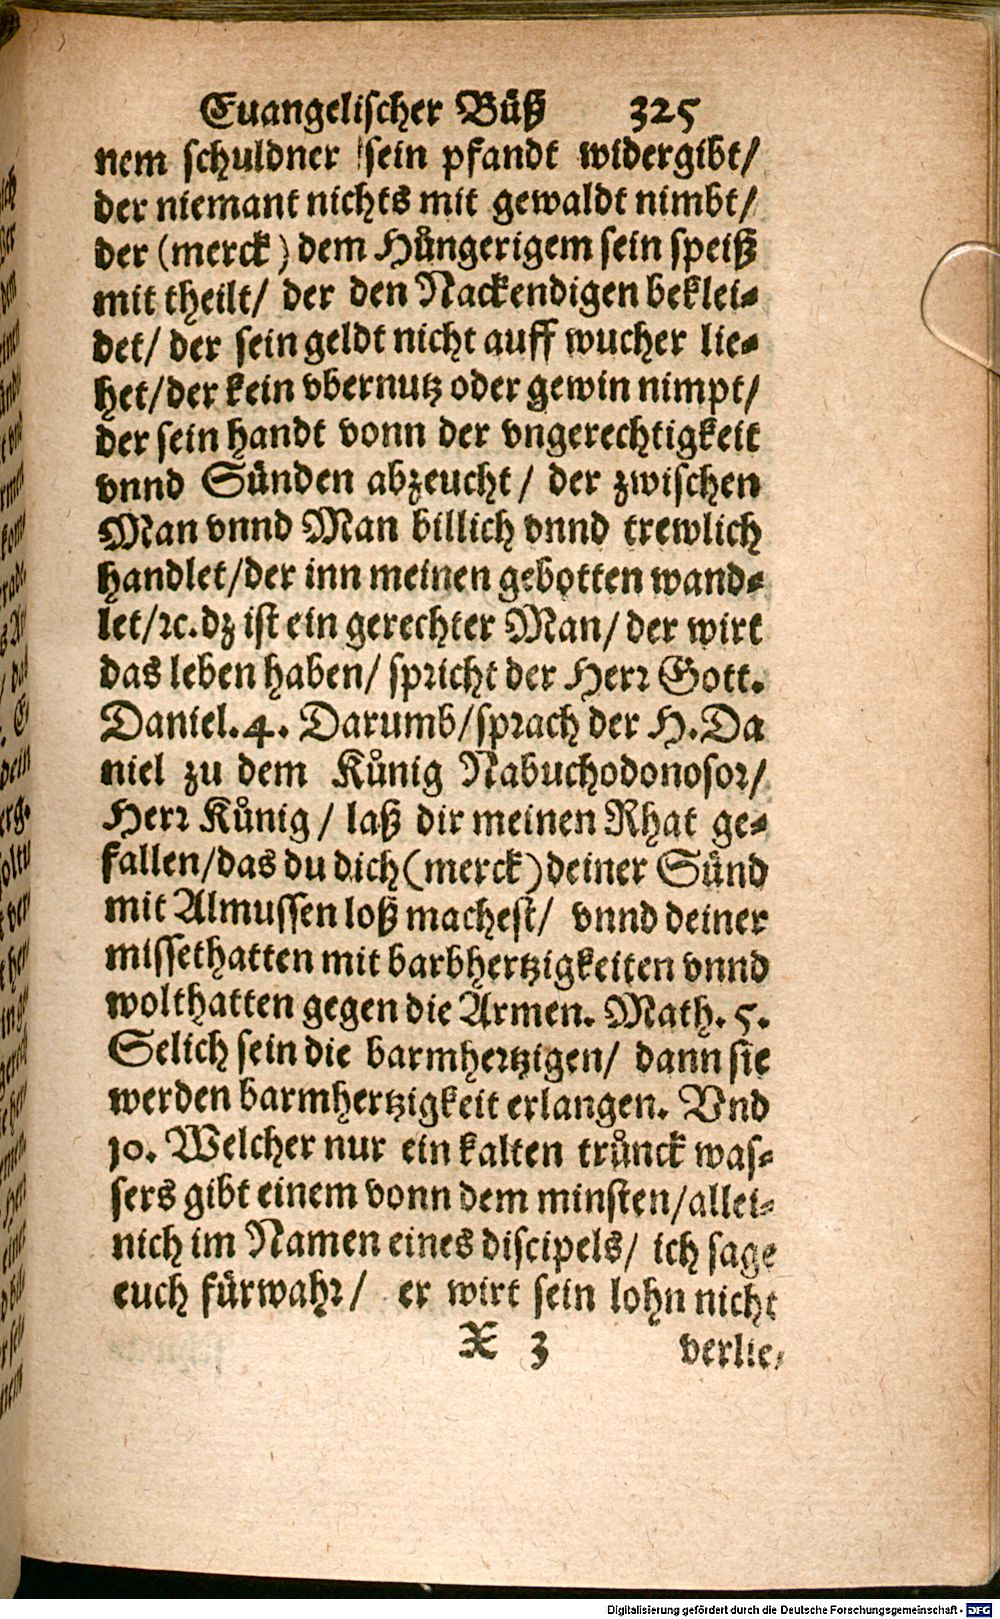 Euangelischer Büß 325
nem schuldner sein pfandt widergibt/
der niemant nichts mit gewaldt nimbt/
der (merck) dem Hůngerigem sein speiß
mit theilt/ der den Nackendigen beklei-
det/ der sein geldt nicht auff wucher lie-
het/der kein vbernutz oder gewin nimpt/
der sein handt vonn der vngerechtigkeit
vnnd Sünden abzeucht/ der zwischen
Man vnnd Man billich vnnd trewlich
handlet/der inn meinen gebotten wand-
let/ꝛc.dz ist ein gerechter Man/ der wirt
das leben haben/ spricht der Herr Gott.
Daniel.4. Darumb/sprach der H.Da
niel zu dem Kůnig Nabuchodonosor/
Herr Kůnig/ laß dir meinen Rhat ge-
fallen/das du dich(merck)deiner Sünd
mit Almussen loß machest/ vnnd deiner
missethatten mit barbhertzigkeiten vnnd
wolthatten gegen die Armen. Math. 5.
Selich sein die barmhertzigen/ dann sie
werden barmhertzigkeit erlangen. Vnd
10. Welcher nur ein kalten trůnck was-
sers gibt einem vonn dem minsten/allei-
nich im Namen eines discipels/ ich sage
euch fürwahr/ er wirt sein lohn nicht
X 3 verlie-
Digitalisierung gefördert durch die Deutsche Forschungsgemeinschaft - DFG